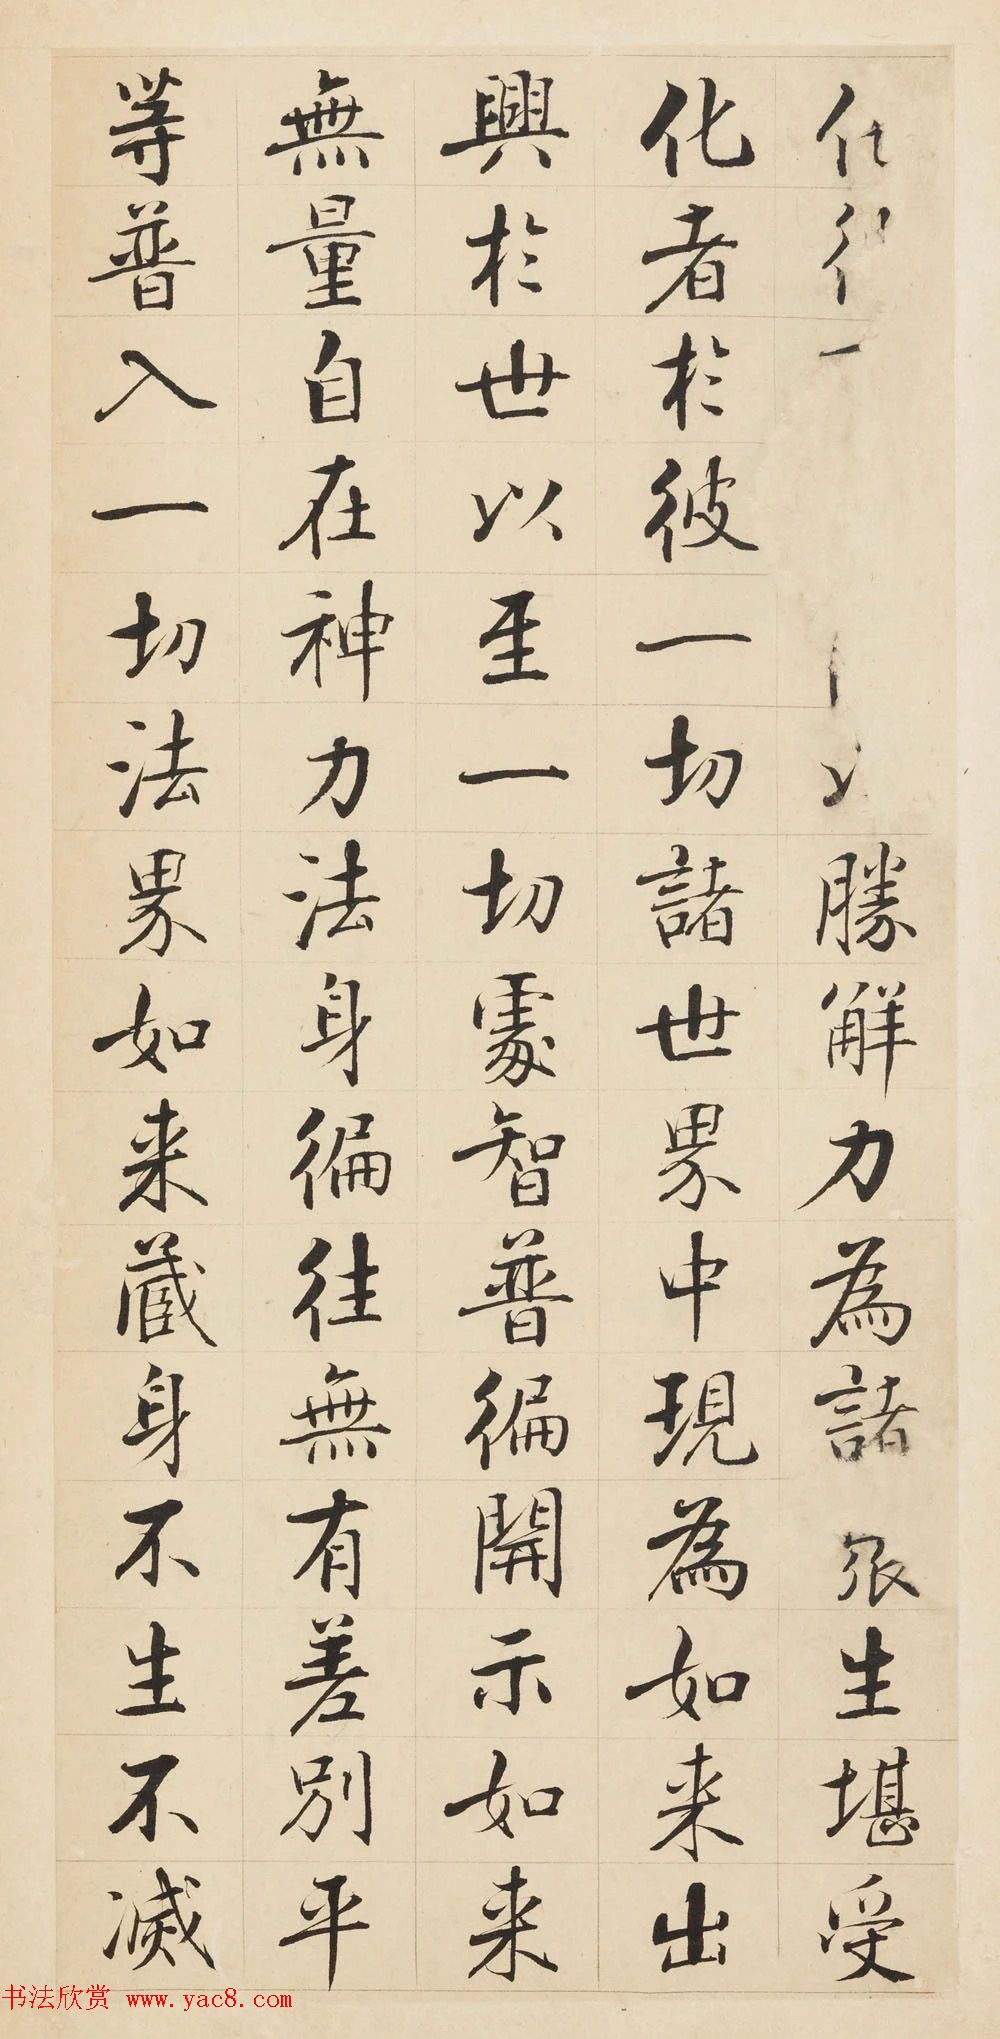 一勝解力為諸生堪受
化者於彼一切諸世界中現為如来出
興於世以至一切處智普徧開示如来
無量自在神力法身徧往無有差別平
等普入一切法界如来藏身不生不滅
书法欣赏 www.yac8.com